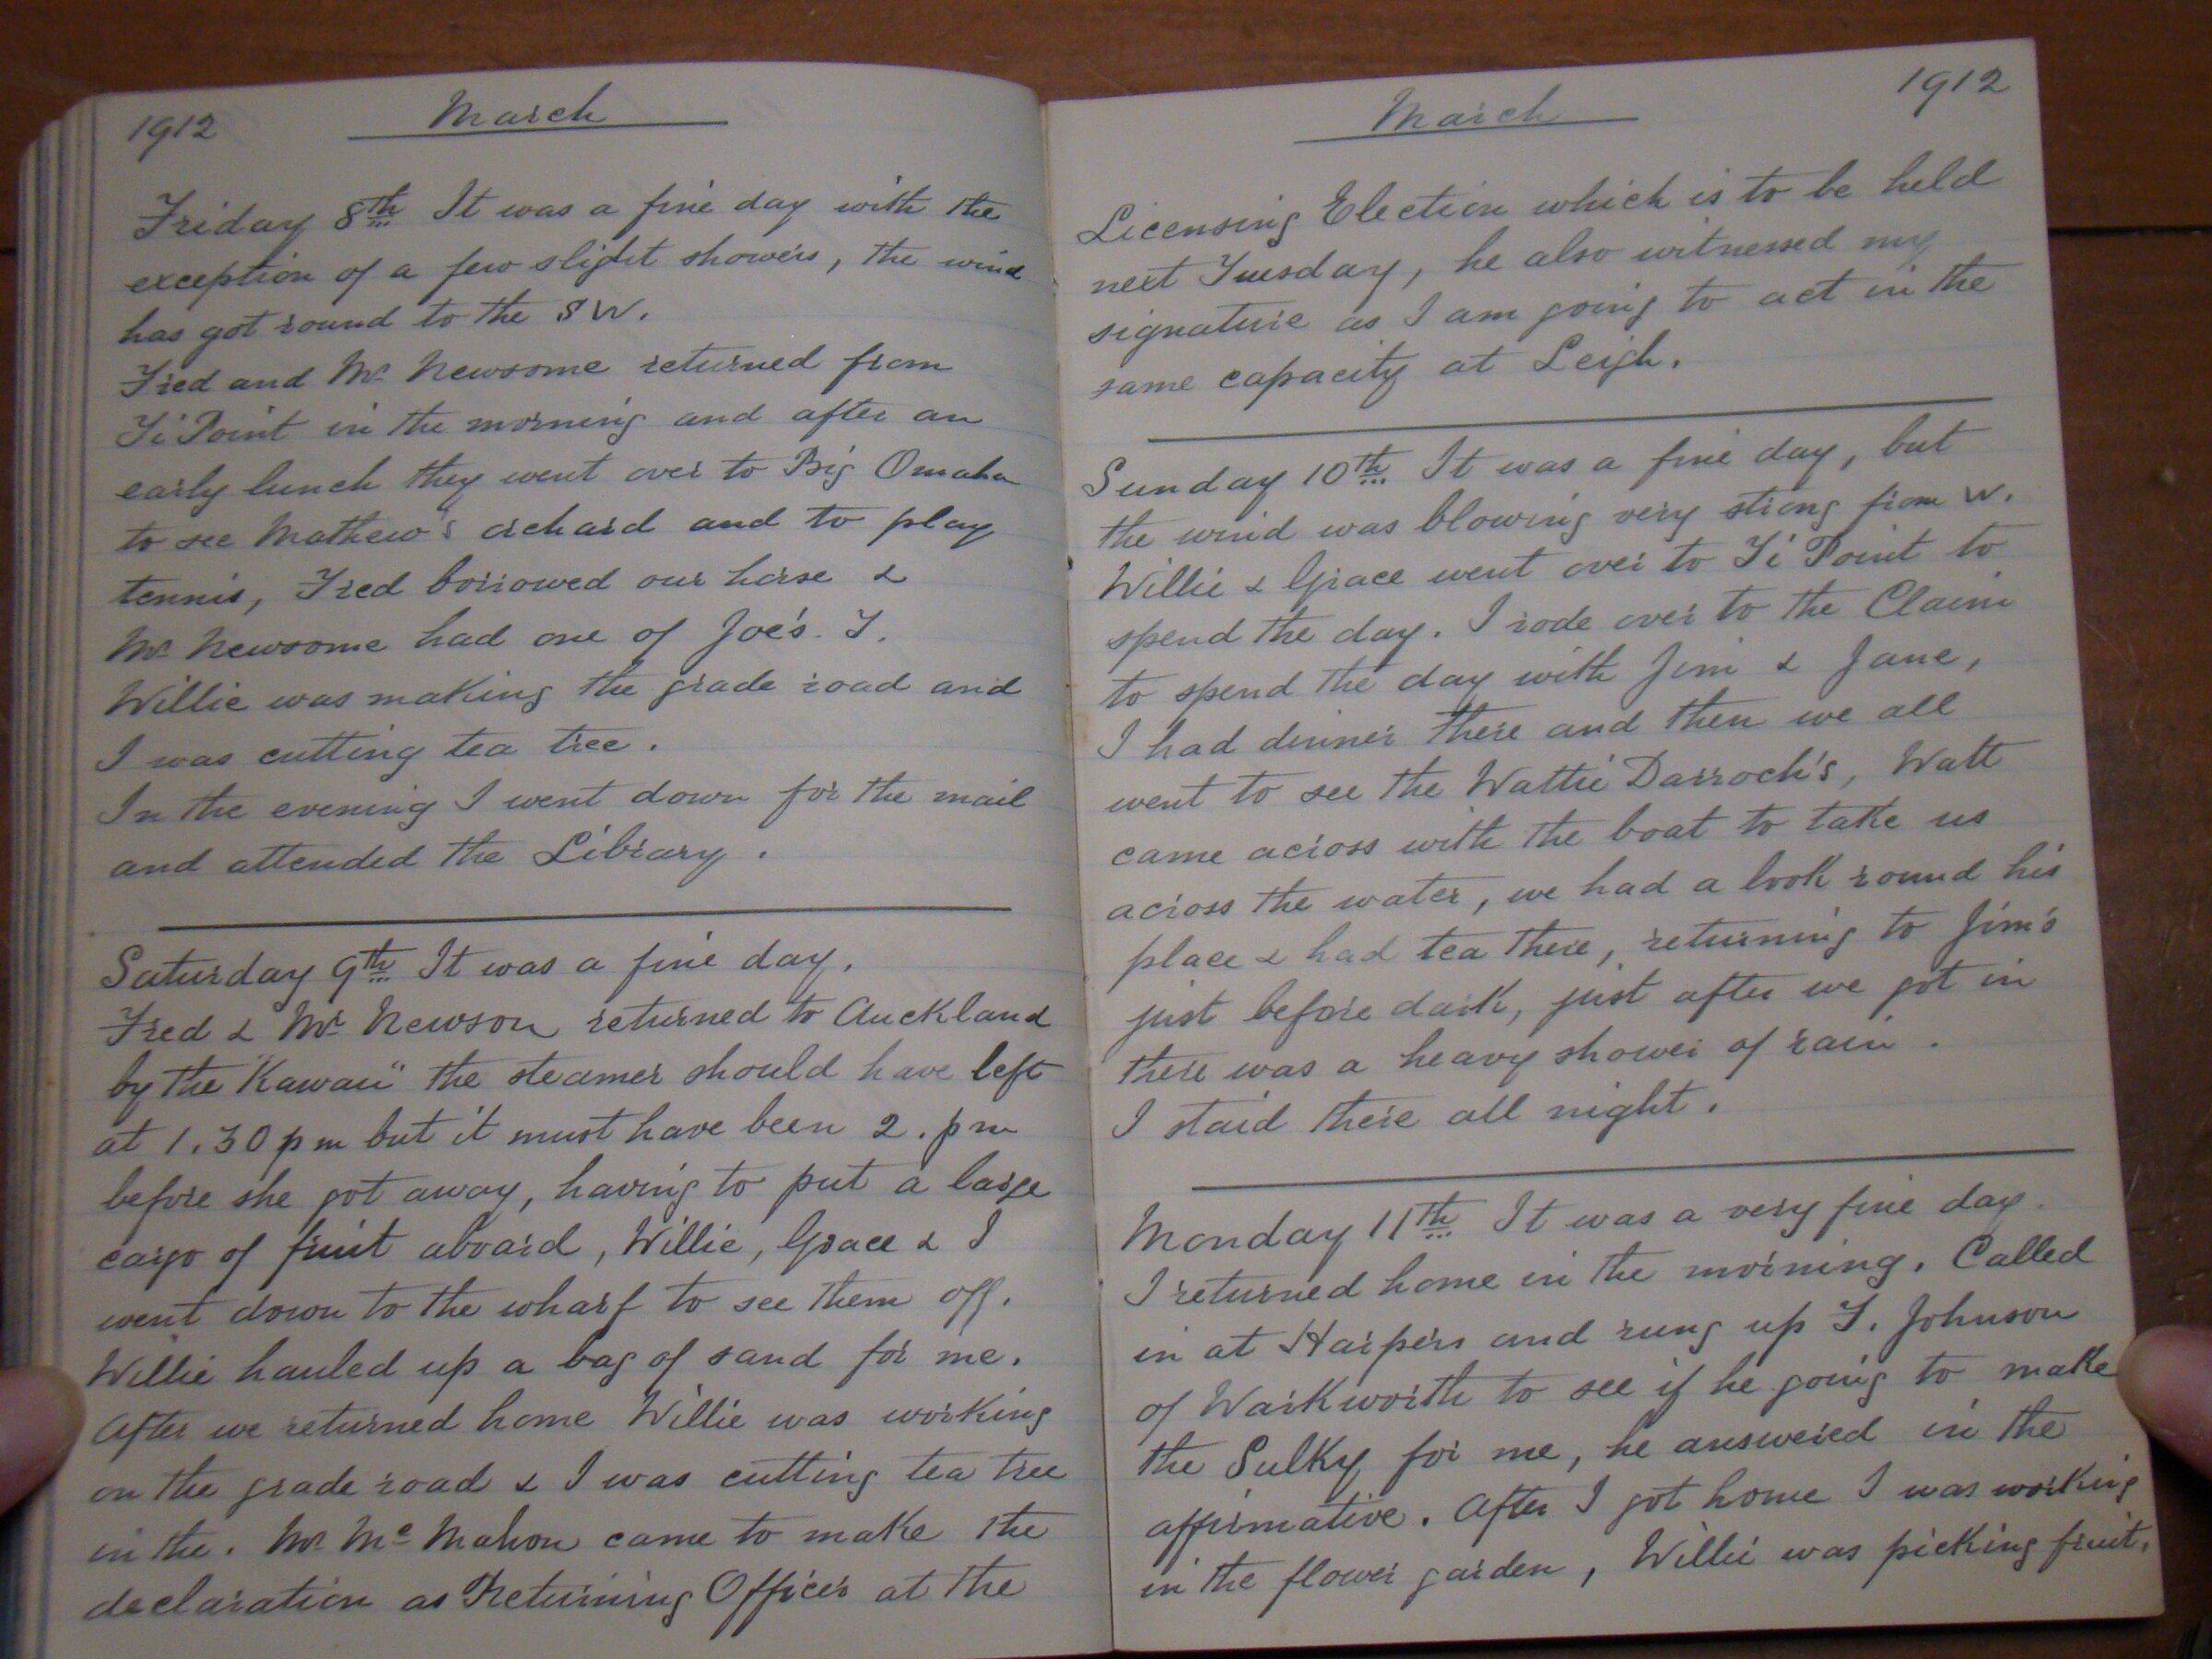 1912
March
Friday 8th It was a fine day with the
exception of a few slight showers, the wind
has got round to the SW.
Fred and Mr Newsome returned from
Ti Point in the morning and after an
early lunch they went over to Big Omaha
to see Mathew's orchard and to play
tennis, Fred borrowed our horse &
Mr Newsome had one of Joe's. T.
Willie was making the grade road and
I was cutting tea tree.
In the evening I went down for the mail
and attended the Library.
Saturday 9th It was a fine day.
Fred & Mr Newson returned to Auckland
by the "Kawau" the steamer should have left
at 1.30 pm but it must have been 2. pm
before she got away, having to put a large
cargo of fruit aboard, Willie, Grace & I
went down to the wharf to see them off.
Willie hauled up a bag of sand for me.
After we returned home Willie was working
on the grade road & I was cutting tea tree
in the. Mr McMahon came to make the
declaration as Returning Officer at the
March
1912
Licensing Election which is to be held
next Tuesday, he also witnessed my
signature as I am going to act in the
same capacity at Leigh.
Sunday 10th It was a fine day, but
the wind was blowing very strong from W.
Willie & Grace went over to Ti Point to
spend the day. I rode over to the Claim
to spend the day with Jim & Jane,
I had dinner there and then we all
went to see the Wattie Darroch's, Watt
came across with the boat to take us
across the water, we had a look round his
place & had tea there, returning to Jim's
just before dark, just after we got in
there was a heavy shower of rain.
I staid there all night.
Monday 11th It was a very fine day.
I returned home in the morning. Called
in at Harpers and rung up T. Johnson
of Warkworth to see if he going to make
the Sulky for me, he answered in the
affirmative. After I got home I was working
in the flower garden, Willie was picking fruit.